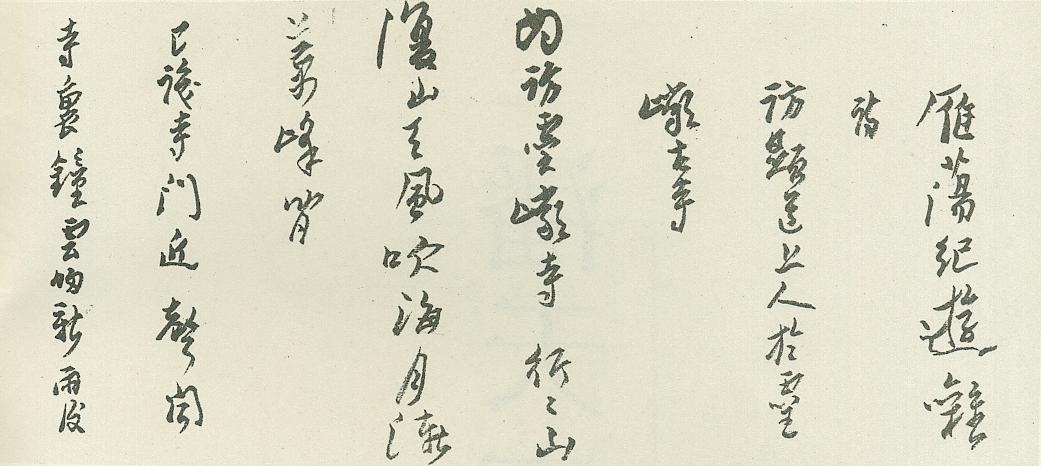 雁蕩紀遊雜
詩
訪顯道上人於靈
巖古寺
為訪靈巖寺 行〻山
復山天風吹海月漸
上萬峰背
已 寺門近聲聞
寺裏鐘雲 新雨後